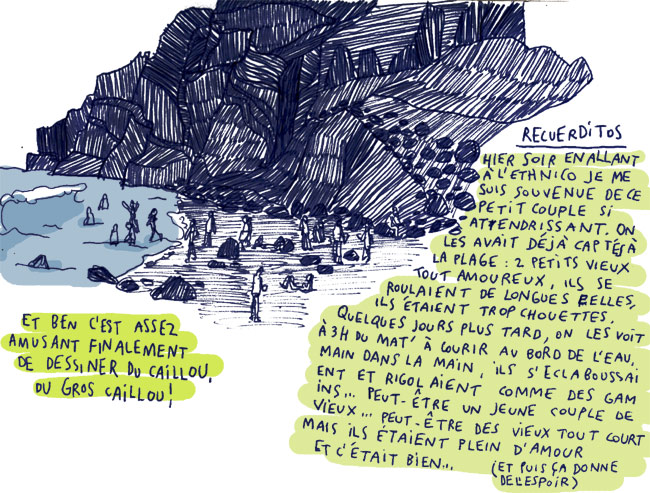 RECUERDITOS
HIER SOIR EN ALLANT
À L'ETHNICO JE ME
SUIS SOUVENUE DE CE
PETIT COUPLE SI
ATTENDRISSANT. ON
LES AVAIT DÉJÀ CAPTÉS À
LA PLAGE : 2 PETITS VIEUX
TOUT AMOUREUX, ILS SE
ROULAIENT DE LONGUES BELLES,
ILS ÉTAIENT TROP CHOUETTES.
QUELQUES JOURS PLUS TARD, ON LES VOIT
À 3H DU MAT' À COURIR AU BORD DE L'EAU,
MAIN DANS LA MAIN, ILS S'ECLABOUSSAI
ENT ET RIGOLAIENT COMME DES GAM
INS... PEUT-ÊTRE UN JEUNE COUPLE DE
VIEUX... PEUT-ÊTRE DES VIEUX TOUT COURT
MAIS ILS ÉTAIENT PLEIN D'AMOUR
ET C'ÉTAIT BIEN...
(ET PUIS ÇA DONNE
DE L'ESPOIR)
ET BEN C'EST ASSEZ
AMUSANT FINALEMENT
DE DESSINER DU CAILLOU,
DU GROS CAILLOU!